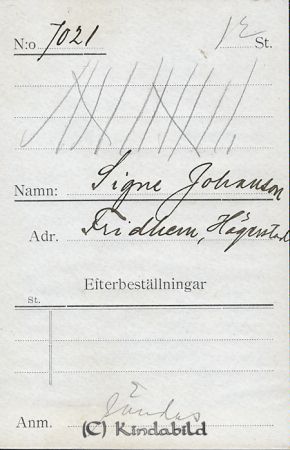 N:o 7021 12 St.
Namn: Signe Johanson
Adr. Fridhem, Högerstad
Efterbeställningar
St.
Anm. Sändas
(C) Kindabild